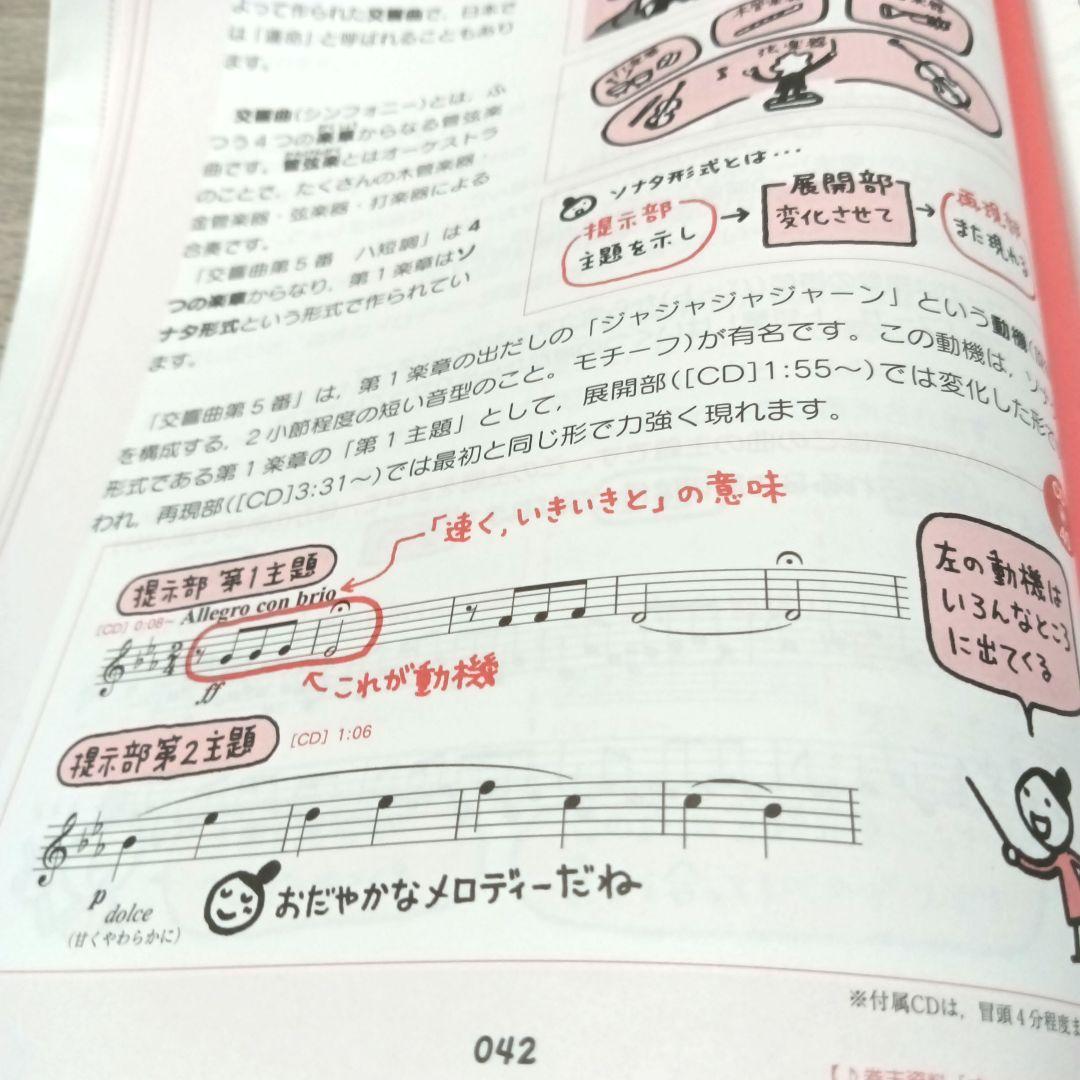 よって作られた交響曲で，日本で
は「運命」と呼ばれることもあり
ます。
交響曲(シンフォニー)とは，ふ
つう4つの楽章からなる管弦楽
曲です。管弦楽とはオーケストラ
のことで，たくさんの木管楽器・
金管楽器・弦楽器・打楽器による
合奏です。
「交響曲第5番 ハ短調」は4
つの楽章からなり，第1楽章はソ
ナタ形式という形式で作られてい
ます。
木管楽器
打楽器
弦楽器
ソナタ形式とは…
提示部
主題を示し
→
展開部
変化させて
→
再現部
また現れる
「交響曲第5番」は，第1楽章の出だしの「ジャジャジャジャーン」という動機
を構成する，2小節程度の短い音型のこと。モチーフ)が有名です。この動機は，ソナ
形式である第1楽章の「第1主題」として，展開部([CD]1:55～)では変化した形で
われ，再現部([CD]3:31～)では最初と同じ形で力強く現れます。
「速く，いきいきと」の意味
提示部 第1主題
Allegro con brio
[CD] 0:08～
2
4
ff
←これが動機
左の動機は
いろんなところ
に出てくる
提示部第2主題
[CD] 1:06
p
dolce
(甘くやわらかに)
おだやかなメロディーだね
※付属CDは，冒頭4分程度ま
042
【♪巻末資料